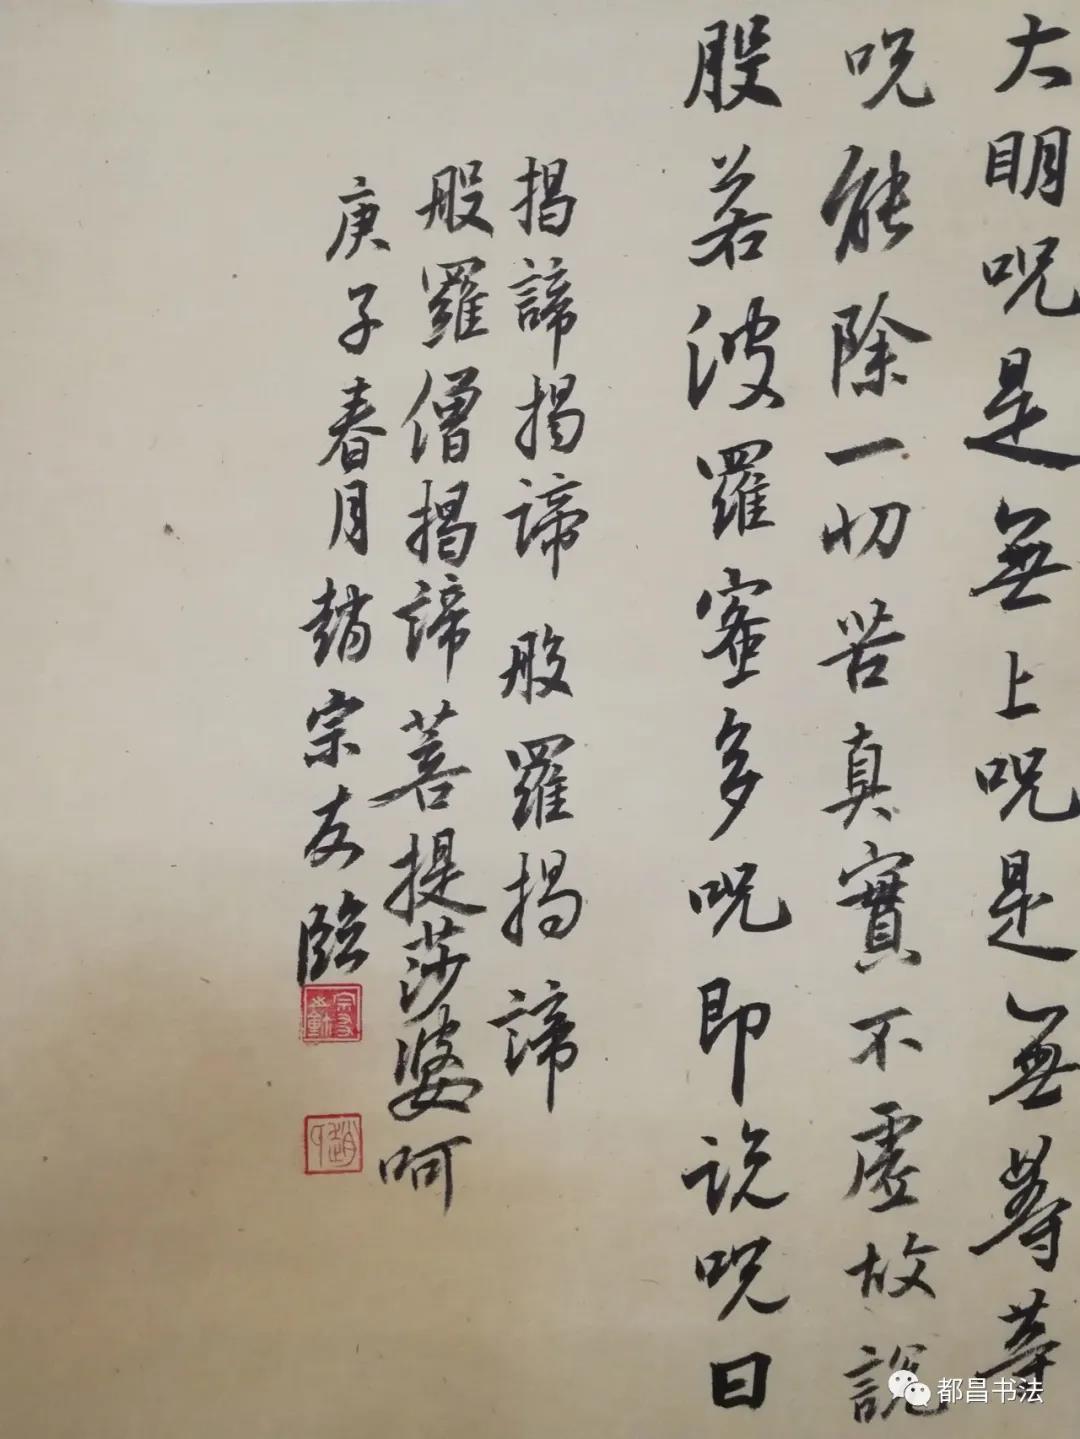 大明呪是無上呪是無等等
呪能除一切苦真實不虛故說
般若波羅蜜多呪即説呪曰
揭諦揭諦 般羅揭諦
般羅僧揭諦菩提莎婆呵
庚子春月趙宗友臨
趙
都昌书法